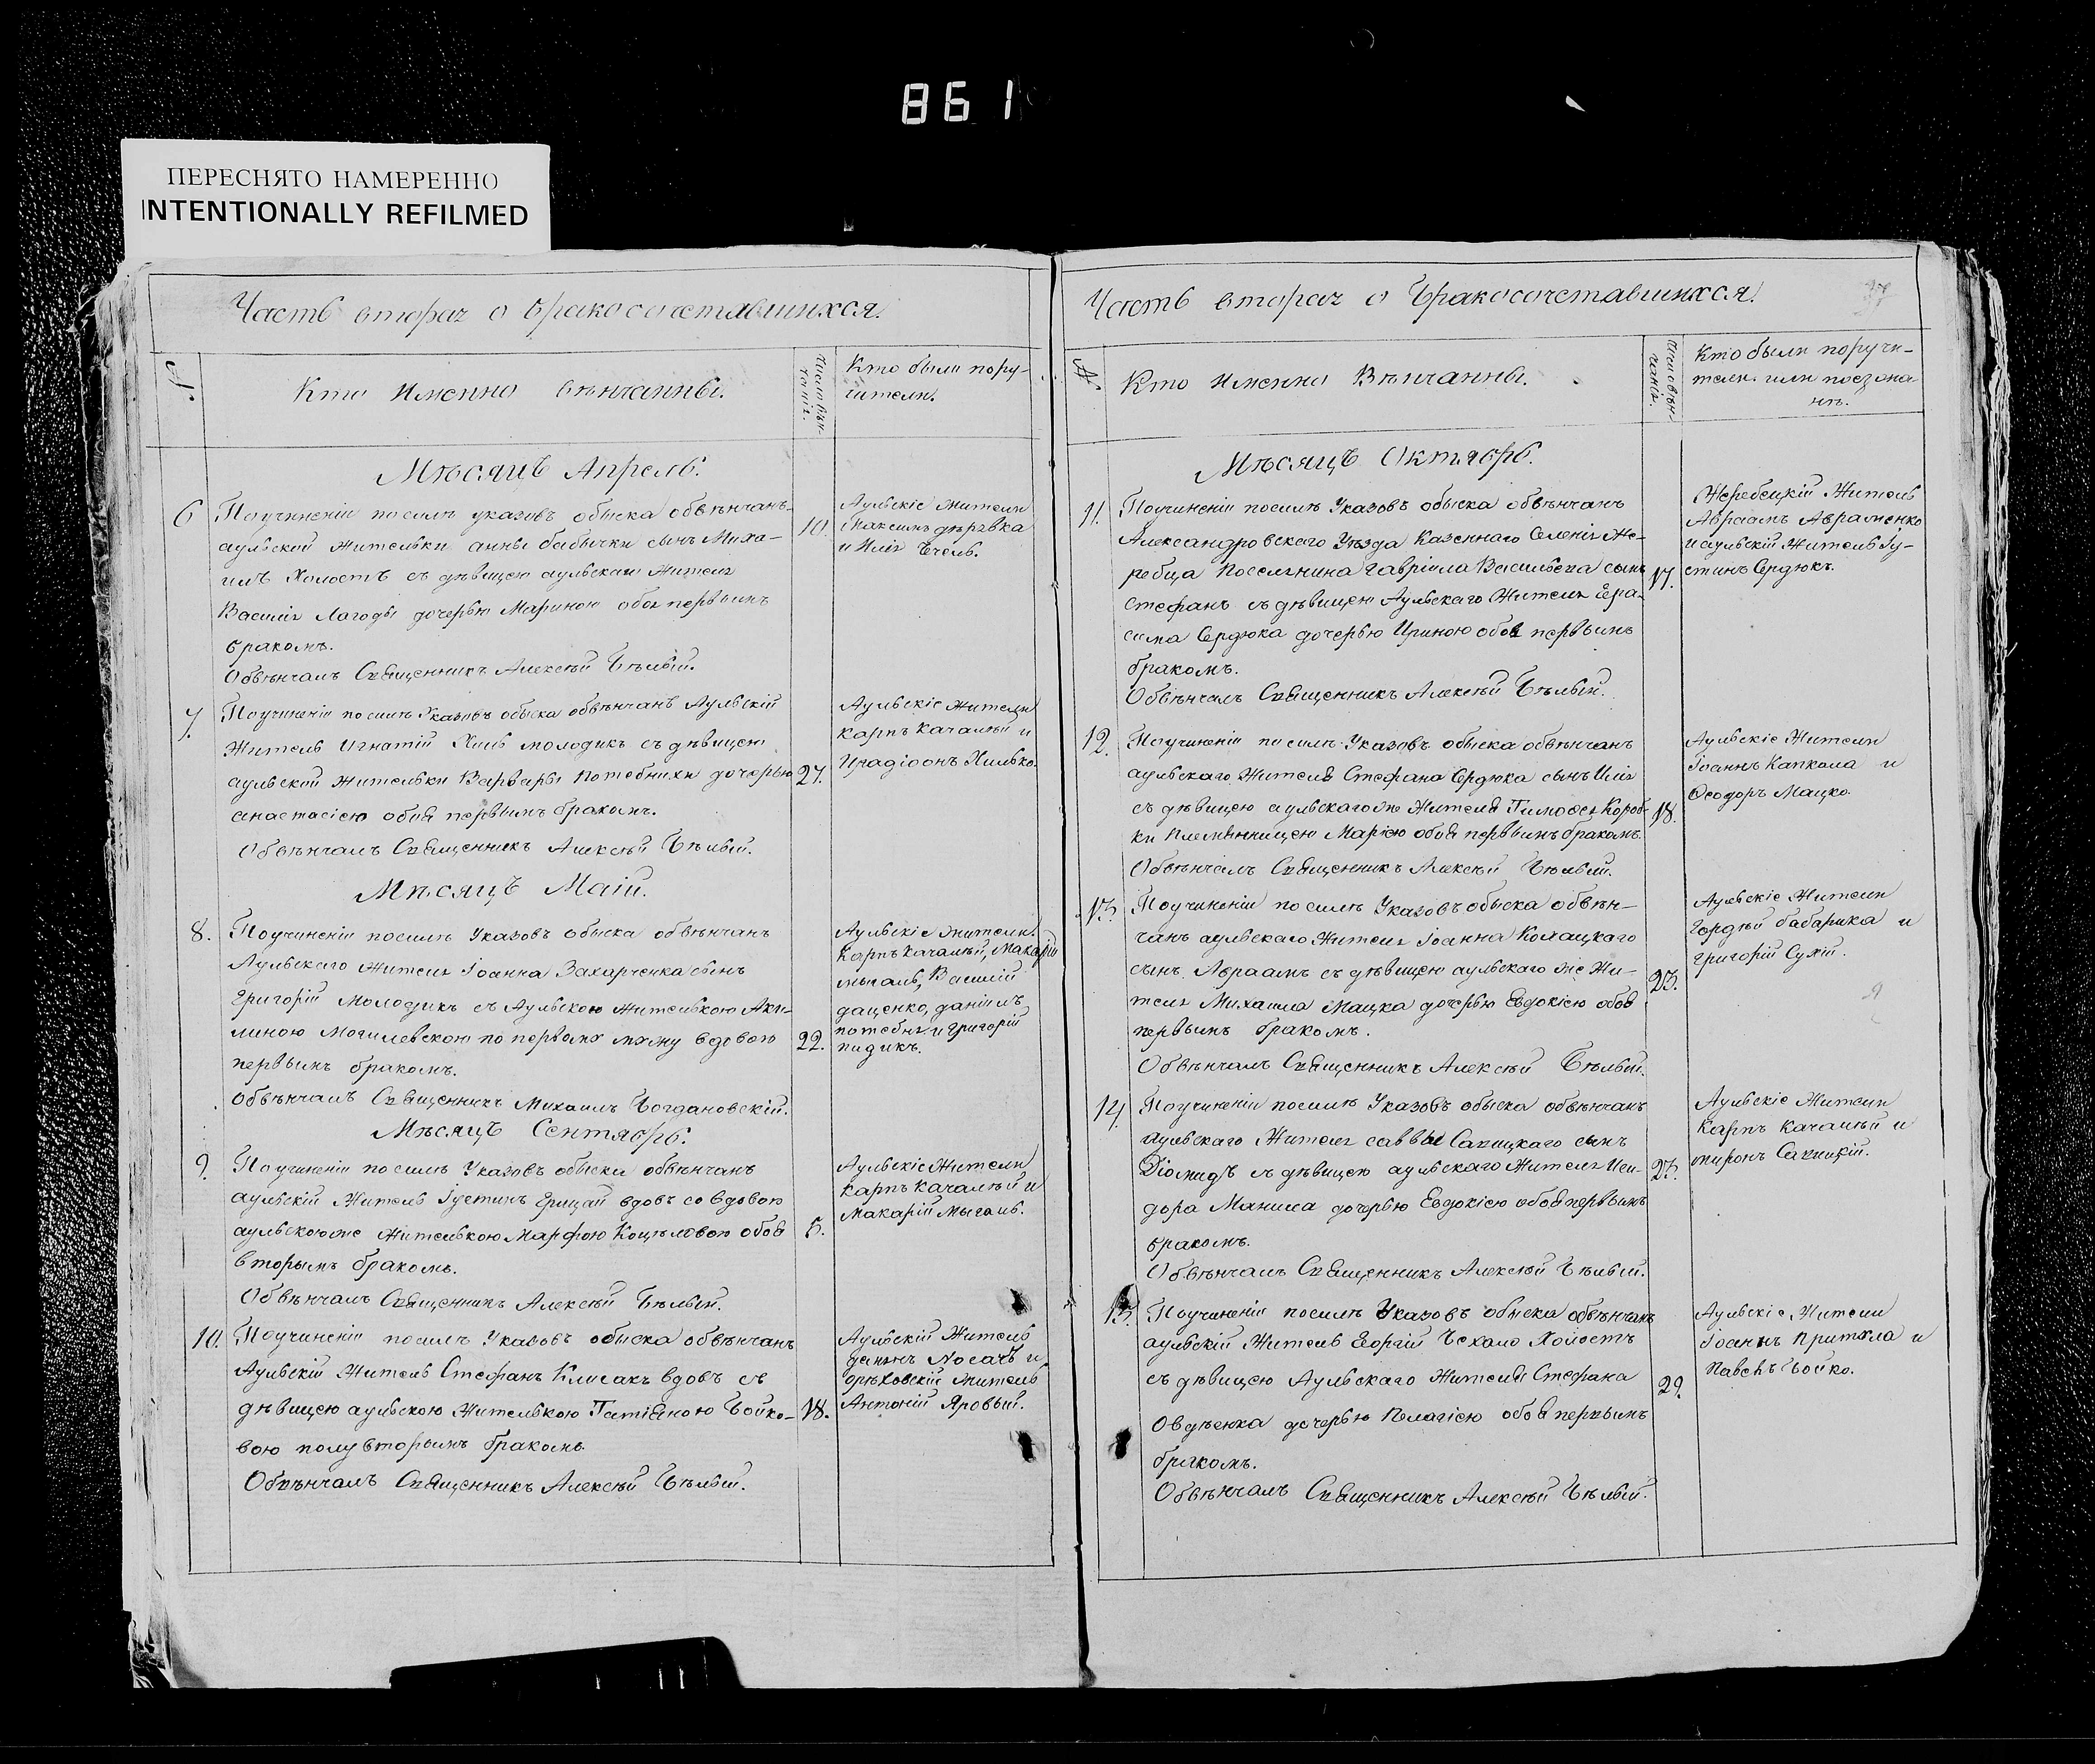 861
ПЕРЕСНЯТО НАМЕРЕННО
INTENTIONALLY REFILMED
Часть вторая о бракосочетавшихся.
№.
Кто именно вѣнчанны.
Число вѣн-
чанія.
Кто были пору-
чители.
Мѣсяцъ Апрель.
6
Поучиненіи посилѣ указовъ обыска обвѣнчанъ
аульской жительки анны бабички сынъ Миха-
илъ Холостъ съ дѣвицею аульскаго жителя
Василія Лагоды дочерью Мариною обоя первымъ
бракомъ.
Обвѣнчалъ Священникъ Алексѣй Бѣлый.
10.
Аульскіе жители
Максимъ
и Илія
7.
Поучиненіи посилѣ Указовъ обыска обвѣнчанъ Аульскій
житель Игнатій Хиль молодикъ съ дѣвицею
аульской жительки Варвары Потебнихи дочерью
анастасіею обоя первымъ бракомъ.
Обвѣнчалъ Священникъ Алексѣй Бѣлый.
27.
Аульскіе жители
Карпъ Качалый и
Ирадіонъ Хилько.
Мѣсяцъ Маій.
8.
Поучиненіи посилѣ Указовъ обыска обвѣнчанъ
Аульскаго жителя Іоанна Захарченка сынъ
Григорій Молодикъ съ Аульскою жителькою Аки-
линою Могилевскою по первомъ мужу вдовою
первымъ бракомъ.
Обвѣнчалъ Священникъ Михаилъ Богдановскій.
22.
Аульскіе жители.
Карпъ Качалый, Макарій
мыгаль, Василій
даценко, даніилъ
потебня и Григорій
пидикъ.
Мѣсяцъ Сентябрь.
9.
Поучиненіи посилѣ Указовъ обыска обвѣнчанъ
аульскій житель Іустинъ Ерицай вдовъ со вдовою
аульскоюже жителькою Марфою Коцыловою обоя
вторымъ бракомъ.
Обвѣнчалъ Священникъ Алексѣй Бѣлый.
5.
Аульскіе Жители
Карпъ Качалый и
Макарій Мыгаль.
10.
Поучиненіи посилѣ Указовъ обыска обвѣнчанъ
Аульскій Житель Стефанъ Клисакъ вдовъ съ
дѣвицею аульскою жителькою Татіаною Бойко-
вою полувторымъ бракомъ
Обвѣнчалъ Священникъ Алексѣй Бѣлый.
18.
Аульскій Житель
Носачъ и
орѣховскій житель
Антоній Яровый.
Часть вторая о Бракосочетавшихся.
№
Кто именно Вѣнчанны.
Число вѣн-
чанія.
Кто были поручи-
тели или поезжа-
нѣ.
Мѣсяцъ Октябрь.
11.
Поучиненіи посилѣ Указовъ обыска обвѣнчанъ
Александровскаго Уѣзда Казеннаго Селенія Же-
ребца Поселянина Гавріила Васильева сынъ
Стефанъ съ дѣвицею Аульскаго Жителя Гера-
сима Сердюка дочерью Ириною обоя первымъ
бракомъ.
Обвѣнчалъ Священникъ Алексѣй Бѣлый.
17.
Жеребецкій Житель
Авраамъ Авраменко
и аульскій Житель Іу-
стинъ Сердюкъ.
12.
Поучиненіи посилѣ Указовъ обыска обвѣнчанъ
аульскаго Жителя Стефана Сердюка сынъ Илія
съ дѣвицею аульскагоже Жителя Тимофея Короб-
ки Племянницею Маріею обоя первымъ бракомъ.
Обвѣнчалъ Священникъ Алексѣй Бѣлый.
18.
Аульскіе Жители
Іоаннъ Капкала и
Ѳеодоръ Мацко.
13.
Поучиненіи посилѣ Указовъ обыска обвѣн-
чанъ аульскаго Жителя Іоанна Колацкаго
сынъ Авраамъ съ дѣвицею аульскаго же Жи-
теля Михаила Мацка дочерью Евдокіею обоя
первымъ бракомъ.
Обвѣнчалъ Священникъ Алексѣй Бѣлый.
23.
Аульскіе Жители
Гордѣй бабарика и
григорій Сухій.
14.
Поучиненіи посилѣ Указовъ обыска обвѣнчанъ
аульскаго Жителя саввы Савицкаго сынъ
Діомидъ съ дѣвицею аульскаго Жителя Иси-
дора Манила дочерью Евдокіею обоя первымъ
бракомъ.
Обвѣнчалъ Священникъ Алексѣй Бѣлый.
27.
Аульскіе Жители
Карпъ Качалый и
миронъ Савицкій.
15.
Поучиненіи посилѣ Указовъ обыска обвѣнчанъ
аульскій Житель Георгій Чехало Холостъ
съ дѣвицею Аульскаго Жителя Стефана
Овдѣенка дочерью Пелагіею обоя первымъ
бракомъ.
Обвѣнчалъ Священникъ Алексѣй Бѣлый.
29.
Аульскіе Жители
Іоаннъ Притула и
Павелъ Бойко.